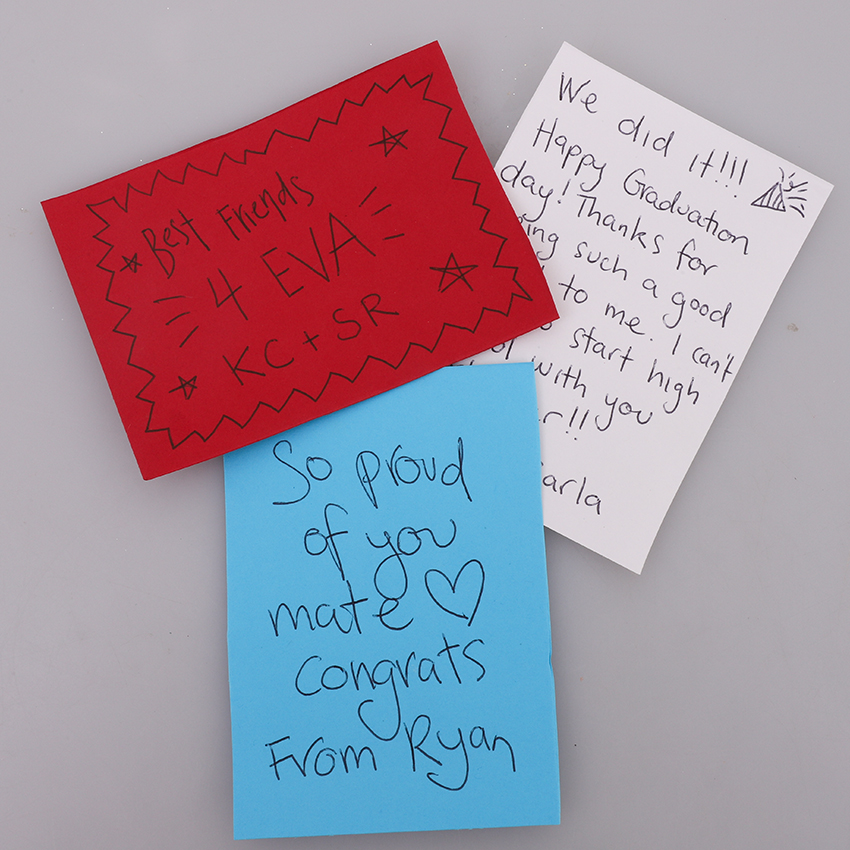 Best Friends
4 EVA
KC + SR
We did it!!!
Happy Graduation
day! Thanks for
such a good
to me. I can't
start high
with you
So proud
of you
mate ♡
congrats
From Ryan